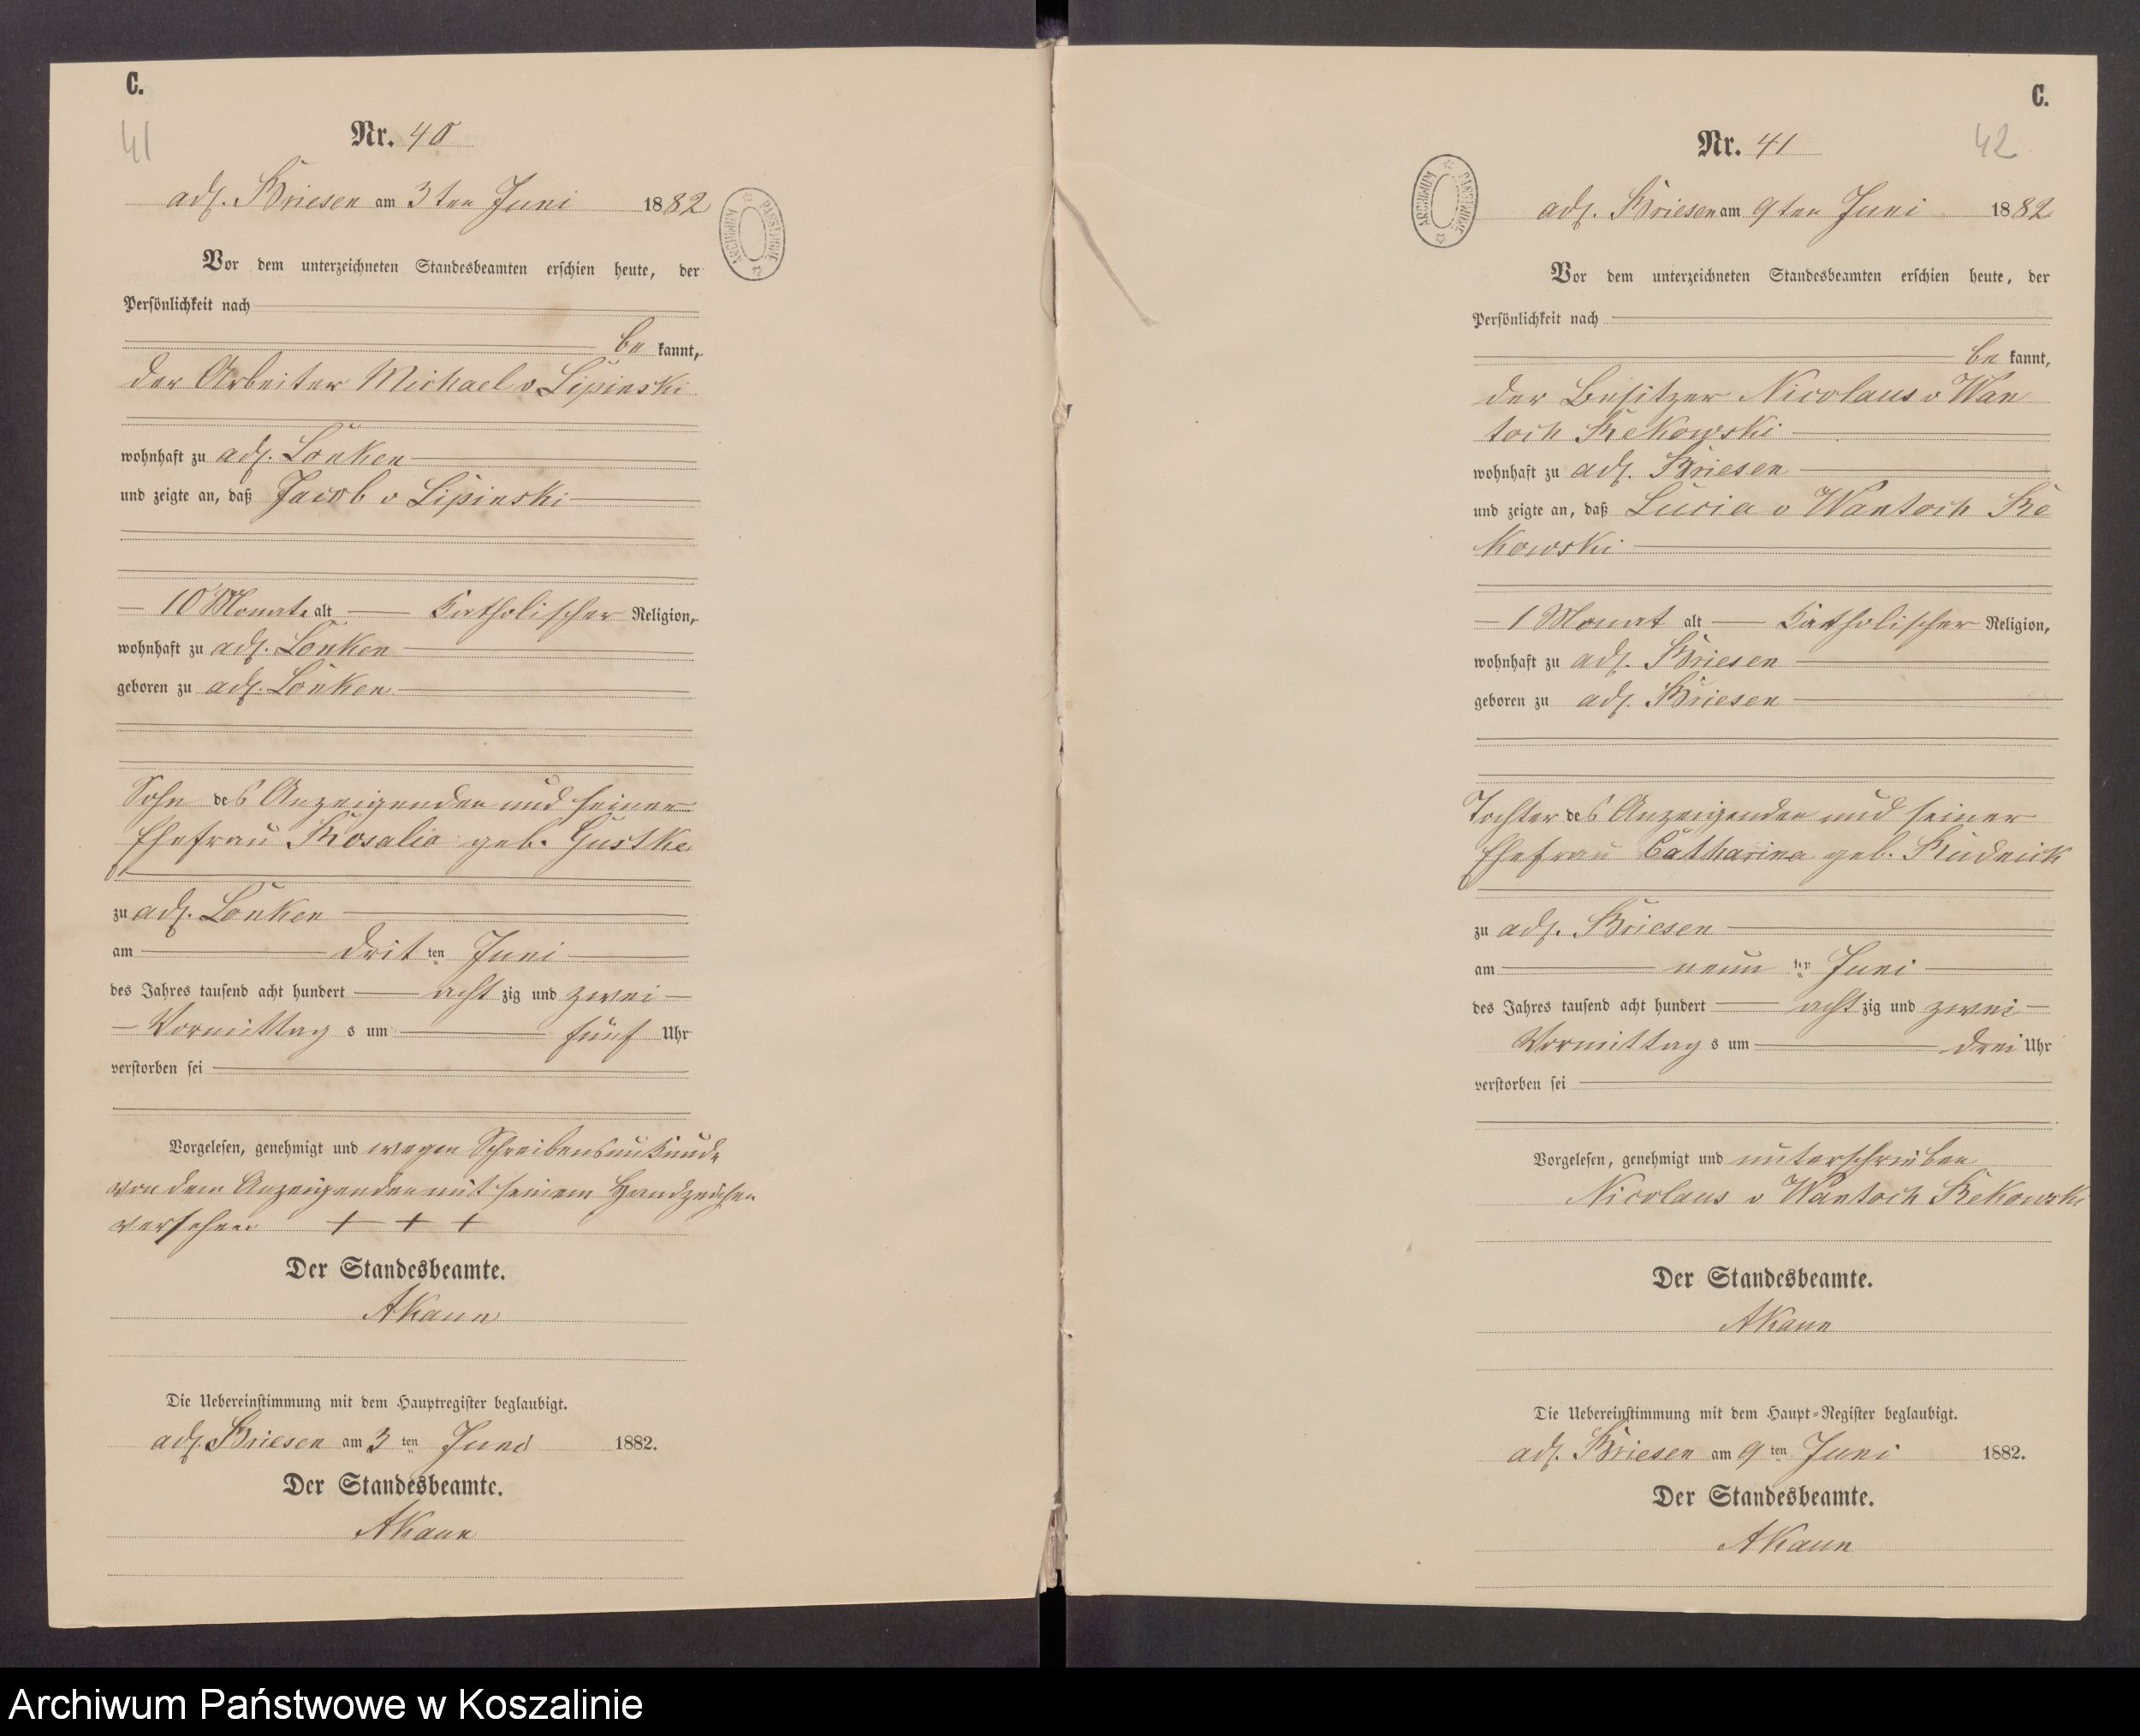 C.
41
Nr. 40
adl. Briesen am 3ten Juni 1882
Vor dem unterzeichneten Standesbeamten erschien heute, der
Persönlichkeit nach
be kannt,
der Arbeiter Michael v Lipinski
wohnhaft zu adl. Lonken
und zeigte an, daß Jacob v Lipinski
10 Monate alt Katholischer Religion,
wohnhaft zu adl. Lonken
geboren zu adl. Lonken
Sohn des Anzeigenden und seiner
Ehefrau Rosalia geb. Gustke
zu adl. Lonken
am drit ten Juni
des Jahres tausend acht hundert acht zig und zwei
Vormittag s um fünf Uhr
verstorben sei
Vorgelesen, genehmigt und wegen Schreibensunkunde
von dem Anzeigenden mit seinem Handzeichen
versehen + + +
Der Standesbeamte.
AKaun
Die Uebereinstimmung mit dem Hauptregister beglaubigt.
adl. Briesen am 3 ten Juni 1882.
Der Standesbeamte.
AKaun
ARCHIWUM PAŃSTWOWE
C.
42
Nr. 41
adl. Briesen am 9ten Juni 1882
Vor dem unterzeichneten Standesbeamten erschien heute, der
Persönlichkeit nach
be kannt,
der Besitzer Nicolaus v Wan
toch Rekowski
wohnhaft zu adl. Briesen
und zeigte an, daß Lucia v Wantoch Re
kowski
1 Monat alt Katholischer Religion,
wohnhaft zu adl. Briesen
geboren zu adl. Briesen
Tochter des Anzeigenden und seiner
Ehefrau Catharina geb. Rudnick
zu adl. Briesen
am neun ten Juni
des Jahres tausend acht hundert acht zig und zwei
Vormittag s um drei Uhr
verstorben sei
Vorgelesen, genehmigt und unterschrieben
Nicolaus v Wantoch Rekowski
Der Standesbeamte.
AKaun
Die Uebereinstimmung mit dem Haupt-Register beglaubigt.
adl. Briesen am 9 ten Juni 1882.
Der Standesbeamte.
AKaun
ARCHIWUM PAŃSTWOWE
Archiwum Państwowe w Koszalinie